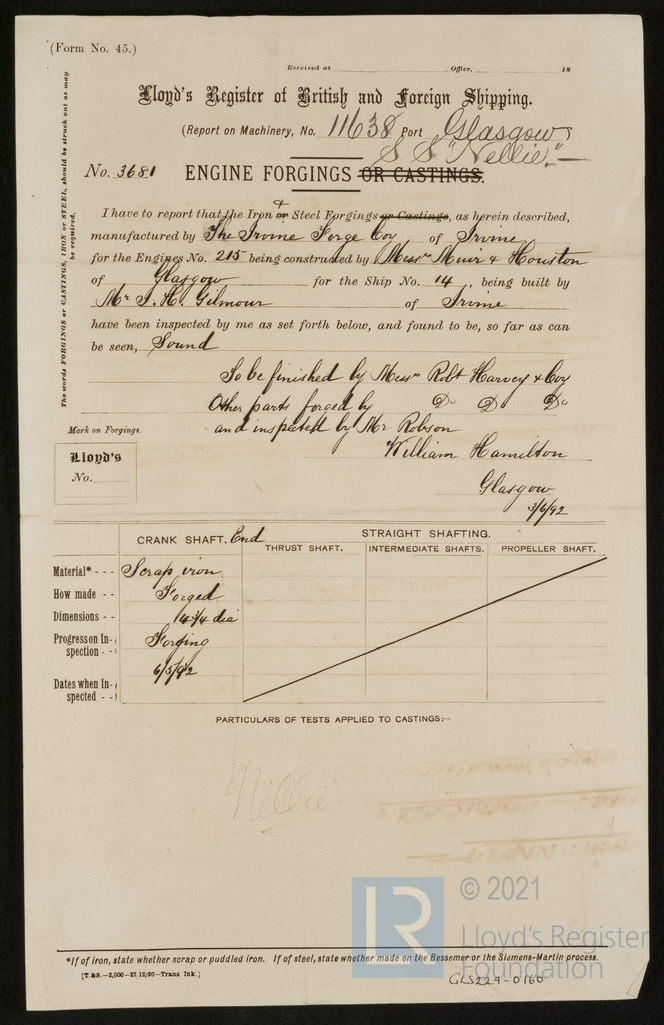 (Form No. 45.)
Received at Office, 18
Lloyd's Register of British and Foreign Shipping.
(Report on Machinery, No. 11638 Port Glasgow
S.S "Nellie."
No. 3681 ENGINE FORGINGS OR CASTINGS.
I have to report that the Iron or Steel Forgings or Castings, as herein described,
manufactured by The Irvine Forge Coy of Irvine
for the Engines No. 215 being constructed by Messrs Muir & Houston
of Glasgow for the Ship No. 14, being built by
Mr J. H. Gilmour of Irvine
have been inspected by me as set forth below, and found to be, so far as can
be seen, Sound
The words FORGINGS or CASTINGS, IRON or STEEL, should be struck out as may
be required.
To be finished by Messrs Robt Harvey & Coy
Other parts forged by Do Do Do
and inspected by Mr Robson
William Hamilton
Glasgow
3/6/92
Mark on Forgings.
Lloyd's
No.
CRANK SHAFT. End STRAIGHT SHAFTING.
THRUST SHAFT. INTERMEDIATE SHAFTS. PROPELLER SHAFT.
Material* - - - Scrap iron
How made - - Forged
Dimensions - - 4 3/4 dia
Progress on In-
spection - - Forging
6/5/92
Dates when In-
spected - -
PARTICULARS OF TESTS APPLIED TO CASTINGS:—
Nellie
© 2021
LR
Lloyd's Register
Foundation
*If of iron, state whether scrap or puddled iron. If of steel, state whether made on the Bessemer or the Siemens-Martin process.
[T.&S.—2,000—27,12/90—Tranx Ink.]
GLS229-0160